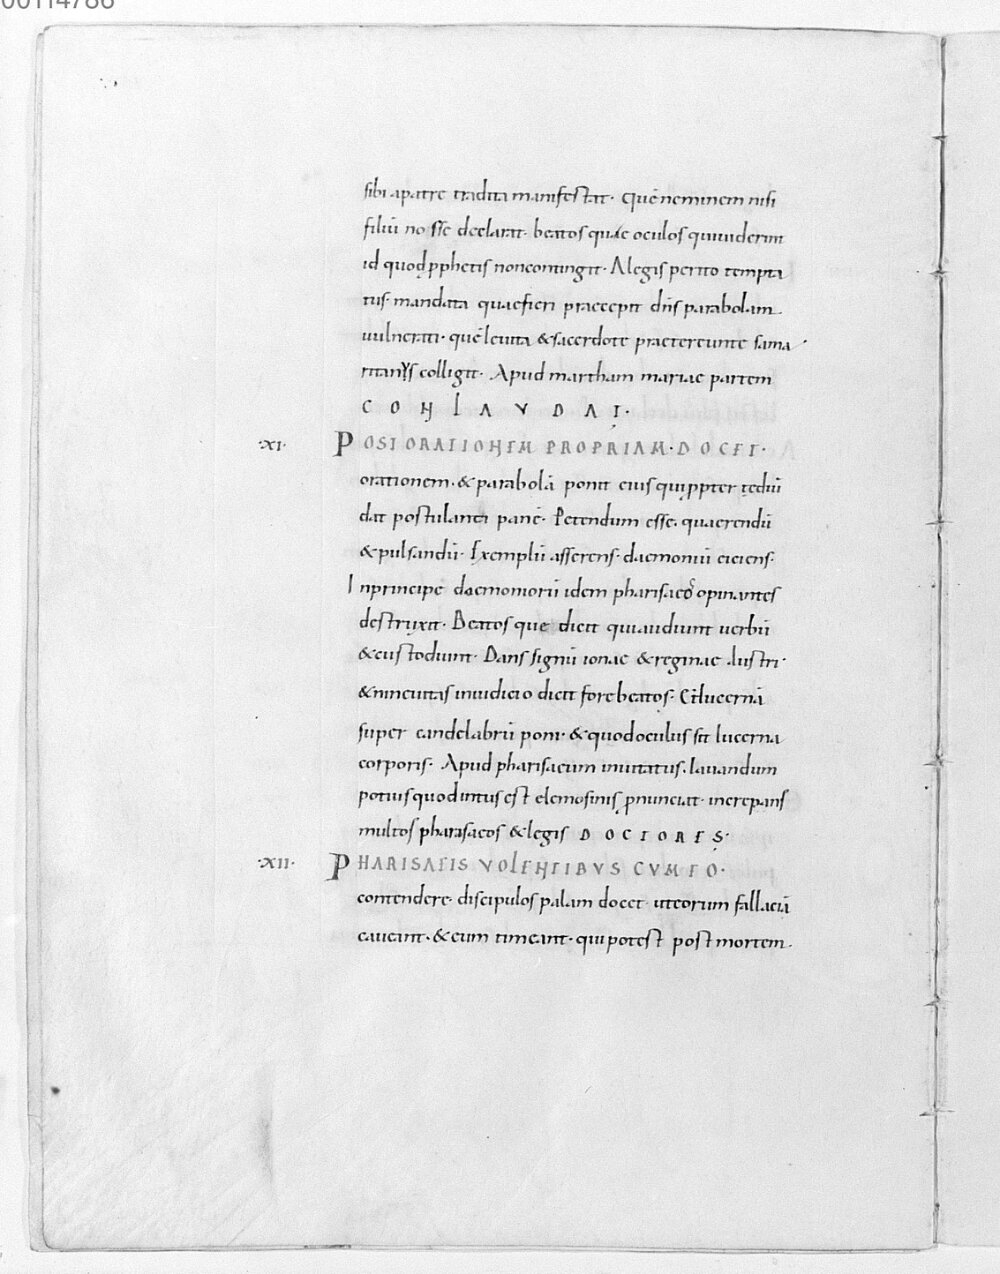 00114786
sibi apatre tradita manifestat· Quē neminem nisi
filiū nosse declarat· beatos quae oculos quiuiderint
id quod ꝓphetis noncontingit· Alegis perito tempta
tus· mandata quaefieri praecepit dn̄s parabolam
uulnerati· quē leuita &sacerdote praetereunte sama
ritanys colligit· Apud martham mariae partem
CONLAVDAT·
·XI· POST ORATIONEM PROPRIAM·DOCET·
orationem·&parabolā ponit eius qui ꝓpter tediū
dat postulanti panē· Petendum esse· quaerendū
&pulsandū· Exemplū afferens· daemoniū eiciens·
Inprincipe daemoniorū idem pharisaeos opinantes
destruxit· Beatos que dicit quiaudiunt uerbū
&custodiunt· Dans signū ionae &reginae austri·
&nineuitas iniudicio dicit fore beatos· Et lucernā
super candelabrū poni· &quodoculus sit lucerna
corporis· Apud pharisaeum inuitatus· lauandum
potius quod intus est elemosinis ꝓnunciat· increpans
multos pharisaeos &legis DOCTORES·
·XII· PHARISAEIS VOLENTIBVS CVM EO·
contendere· discipulos palam docet· uteorum fallaciā
caueant·&eum timeant· qui potest post mortem·